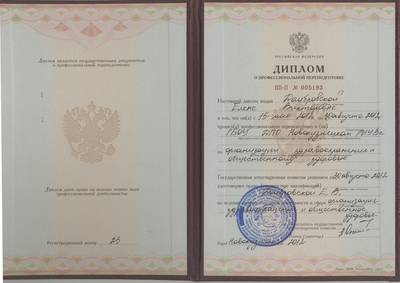 Диплом является государственным документом
о профессиональной переподготовке
Диплом дает право на ведение нового вида
профессиональной деятельности
Регистрационный номер 25
РОССИЙСКАЯ ФЕДЕРАЦИЯ
ДИПЛОМ
О ПРОФЕССИОНАЛЬНОЙ ПЕРЕПОДГОТОВКЕ
ПП-II № 005193
Настоящий диплом выдан Домбровской
Елене
в том, что он(а) с 15 мая 2012 30 августа 2012
прошел(а) профессиональную переподготовку в (на)
ГБОУ ДПО Новокузнецкий ГИУВ
организации здравоохранения и
общественному здоровью
Государственная аттестационная комиссия решением от 30 августа 2012
удостоверяет Домбровской Е. В.
в сфере организации
здравоохранения и общественное
здоровье
Город Новокузнецк 2012